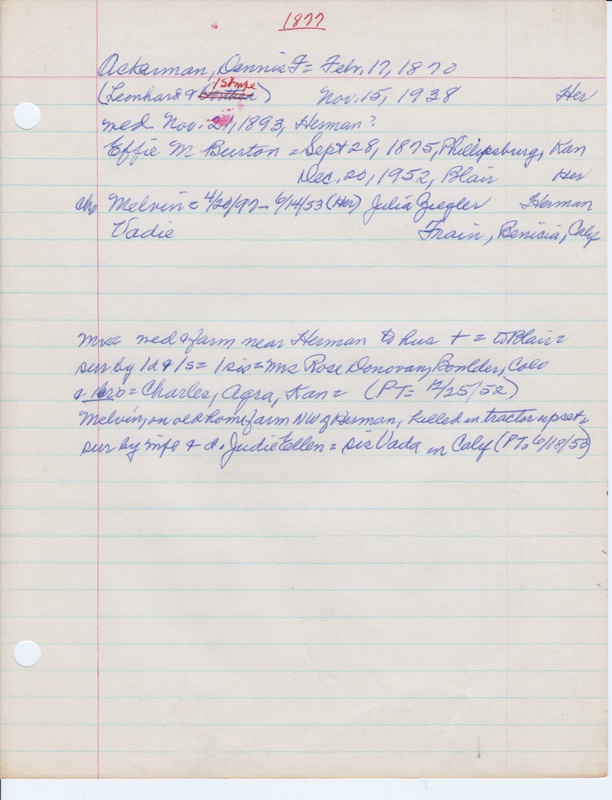 1877
Ackerman, Dennis F = Feb. 17, 1870
1st wife
(Leonhard & Dorthea) Nov. 15, 1938 Her
med Nov. 21, 1893, Herman?
Effie M Burton = Sept 28, 1875, Phillipsburg, Kan
Dec. 20, 1952, Blair Her
Ch, Melvin = 4/20/97 - 6/14/53 (Her) Julia Ziegler Herman
Vadie Frain, Benicia, Calif
Mrs = med & farm near Herman to hus + = to Blair =
sur by 1 d & 1 s = 1 sis = Mrs Rose Donovan, Boulder, Colo
& 1 bro = Charles, Agra, Kan = (PT = 12/25/52)
Melvin, on old home farm NW of Herman, killed in tractor upset =
sur by wife & d. Judie Ellen = sis Vada in Calif (PT. 6/18/53)